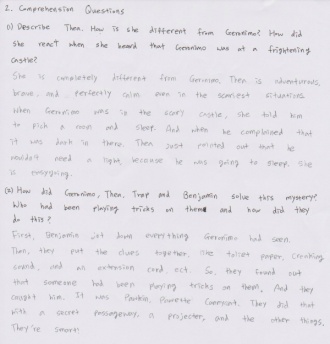 2. Comprehension Questions
(1) Describe Thea. How is she different from Geronimo? How did
she react when she heard that Geronimo was at a frightening
castle?
She is completely different from Geronimo. Thea is adventurous,
brave, and perfectly calm even in the scariest situations.
When Geronimo was in the scary castle, she told him
to pick a room and sleep. And when he complained that
it was dark in there, Thea just pointed out that he
wouldn't need a light, because he was going to sleep. She
is easygoing.
(2) How did Geronimo, Thea, Trap and Benjamin solve this mystery?
Who had been playing tricks on them and how did they
do this?
First, Benjamin jot down everything Geronimo had seen.
Then, they put the clues together, the toilet paper, creaking
sound, and an extension cord ect. So, they found out
that someone had been playing tricks on them. And they
caught him. It was They did that
with a secret passageway, a projector, and the other things.
They're smart!